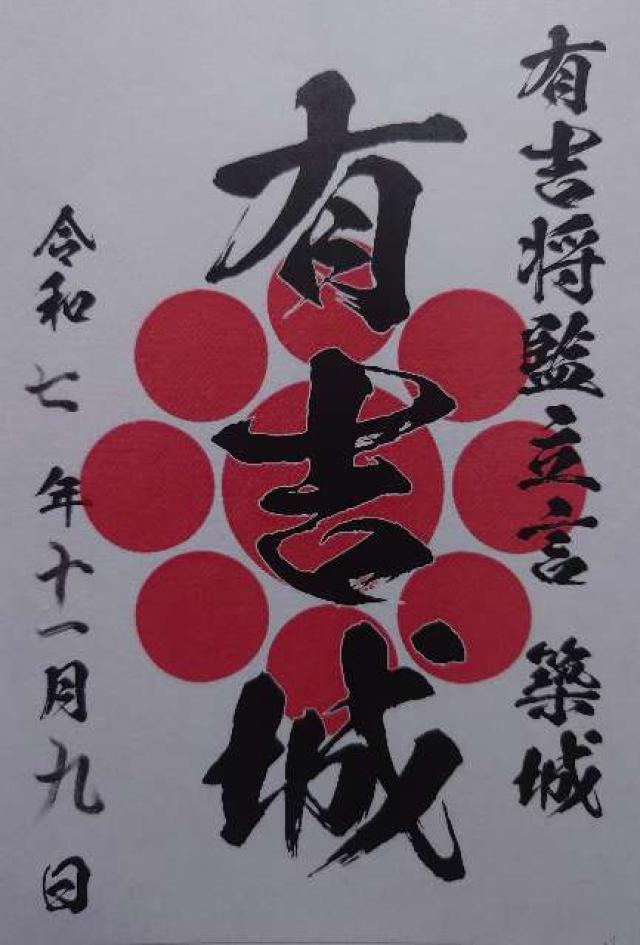 有吉将監立言 築城
有吉城
令和七年十一月九日